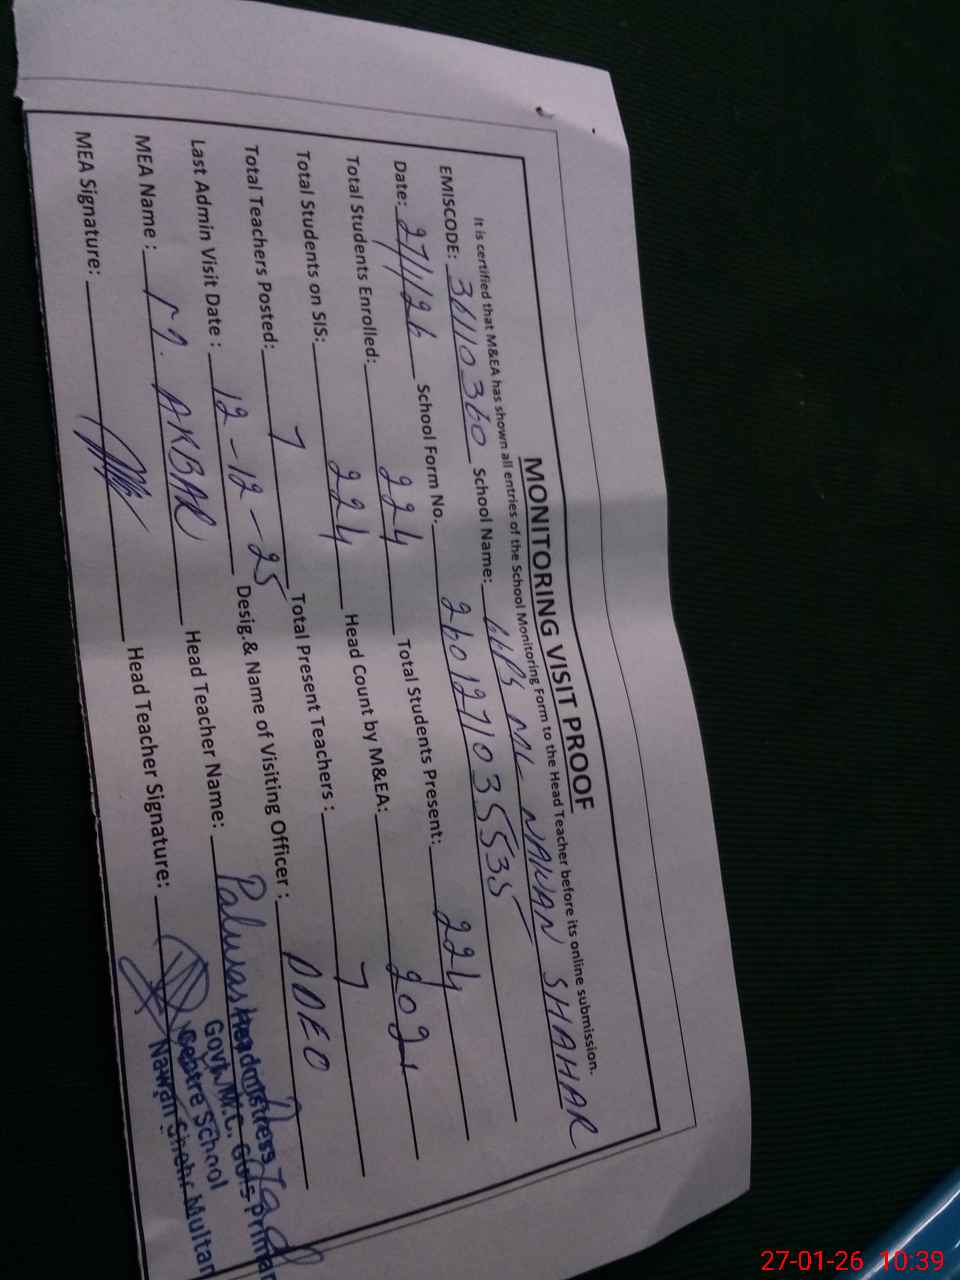 MONITORING VISIT PROOF
It is certified that M&EA has shown all entries of the School Monitoring Form to the Head Teacher before its online submission.
EMISCODE: 36110360 School Name: GGPS MC NAWAN SHAHAR
Date: 27/1/26 School Form No. 260127103553
Total Students Enrolled: 224 Total Students Present: 224
Total Students on SIS: 224 Head Count by M&EA:
Total Teachers Posted: 7 Total Present Teachers : 7
Last Admin Visit Date : 12-12-25 Desig.& Name of Visiting Officer : DDEO
MEA Name : M. AKBAR Head Teacher Name: Palwasha
MEA Signature: Head Teacher Signature:
Headmistress
Govt. M.C. Girls Primar
Centre School
Nawan Shehr Multan
27-01-26 10:39